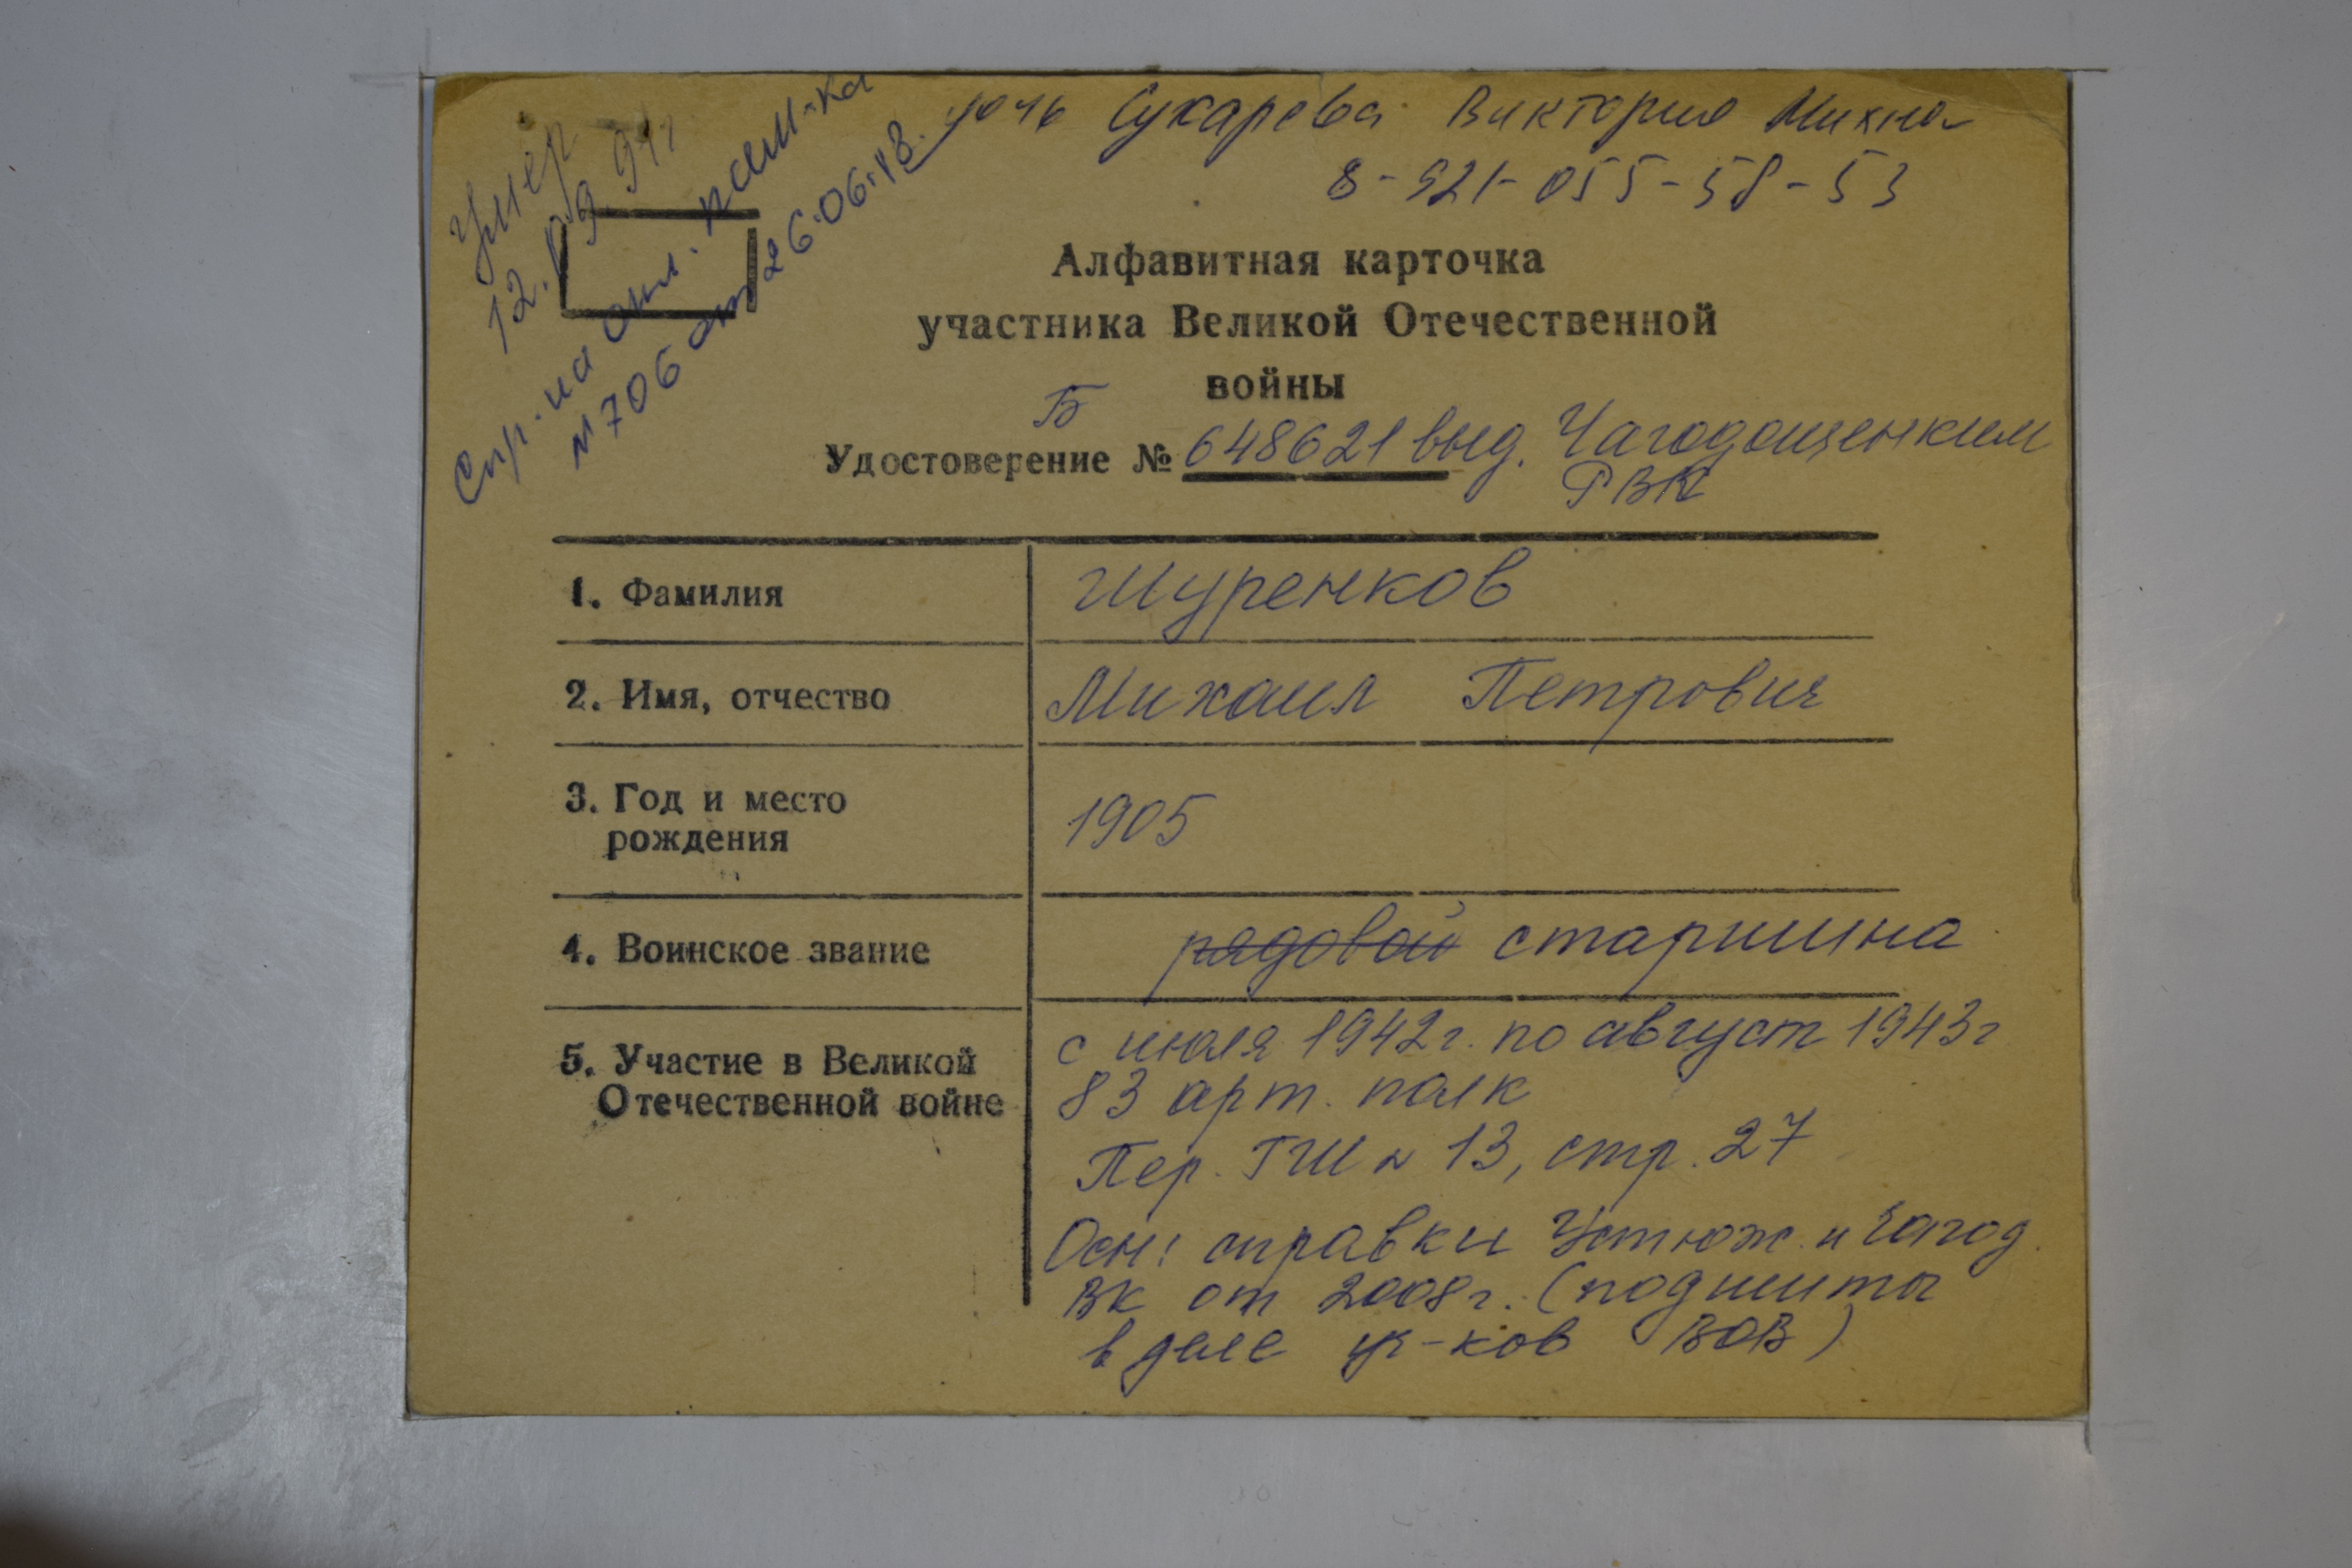 Умер
12.09.91г
Спр. на опл. пам-ка
№706 от 26.06.18.
дочь Сухарева Виктория Михна
8-921-055-58-53
Алфавитная карточка
участника Великой Отечественной
войны
Б
Удостоверение № 648621 выд. Чагодощенким
РВК
1. Фамилия Шуренков
2. Имя, отчество Михаил Петрович
3. Год и место
рождения
1905
4. Воинское звание рядовой старшина
5. Участие в Великой
Отечественной войне
с июля 1942г. по август 1943г
83 арт. полк
Пер. ГШ № 13, стр. 27
Осн: справки Устюж. и Чагод.
ВК от 2008г. (подшиты
в деле уч-ков ВОВ)